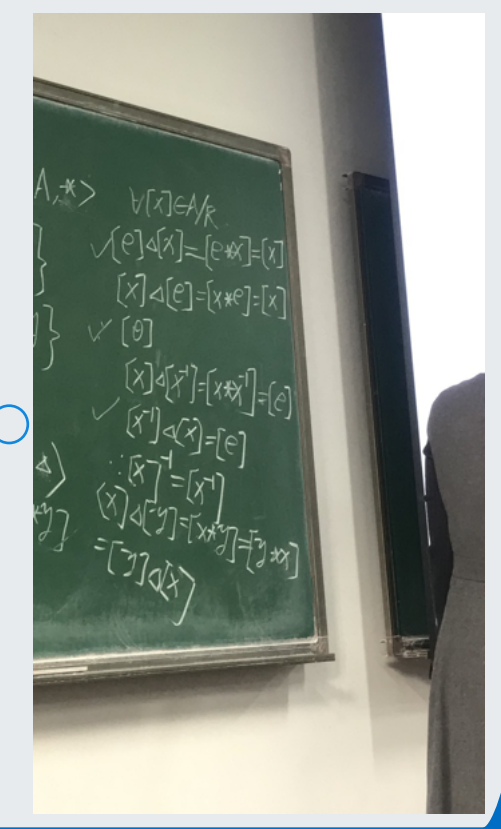 A,*> ∀[x]∈A/R
✓[e]△[x]=[e*x]=[x]
[x]△[e]=[x*e]=[x]
✓ [θ]
[x]△[x⁻¹]=[x*x⁻¹]=[e]
✓ [x⁻¹]△[x]=[e]
∴[x]⁻¹=[x⁻¹]
[x]△[y]=[x*y]=[y*x]
=[y]△[x]